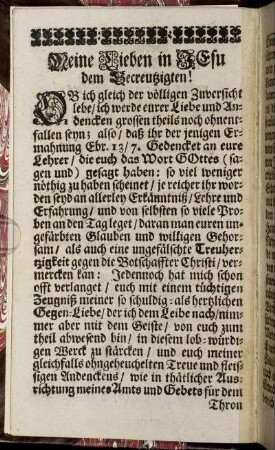 Meine Lieben in JEsu
dem Gecreutzigten!
OB ich gleich der völligen Zuversicht
lebe/ ich werde eurer Liebe und An-
dencken grossen theils noch ohnent-
fallen seyn; also/ daß ihr der jenigen Er-
mahnung Ebr. 13/7. Gedencket an eure
Lehrer/ die euch das Wort GOttes (sa-
gen und) gesagt haben: so viel weniger
nöthig zu haben scheinet/ je reicher ihr wor-
den seyd an allerley Erkänntniß/ Lehre und
Erfahrung/ und von selbsten so viele Pro-
ben an den Tag leget/ daran man euren un-
gefärbten Glauben und willigen Gehor-
sam/ als auch eine ungefälschte Treuher-
zigkeit gegen die Botschaffter Christi/ ver-
mercken kan: Jedennoch hat mich schon
offt verlanget/ euch mit einem tüchtigen
Zeugniß meiner so schuldig- als hertzlichen
Gegen-Liebe/ der ich dem Leibe nach/ nim-
mer aber mit dem Geiste/ von euch zum
theil abwesend bin/ in diesem lob-würdi-
gen Werck zu stärcken/ und euch meiner
gleichfalls ohngeheuchelten Treue und fleis-
sigen Andenckens/ wie in thätlicher Aus-
richtung meines Amts und Gebets für dem
Thron